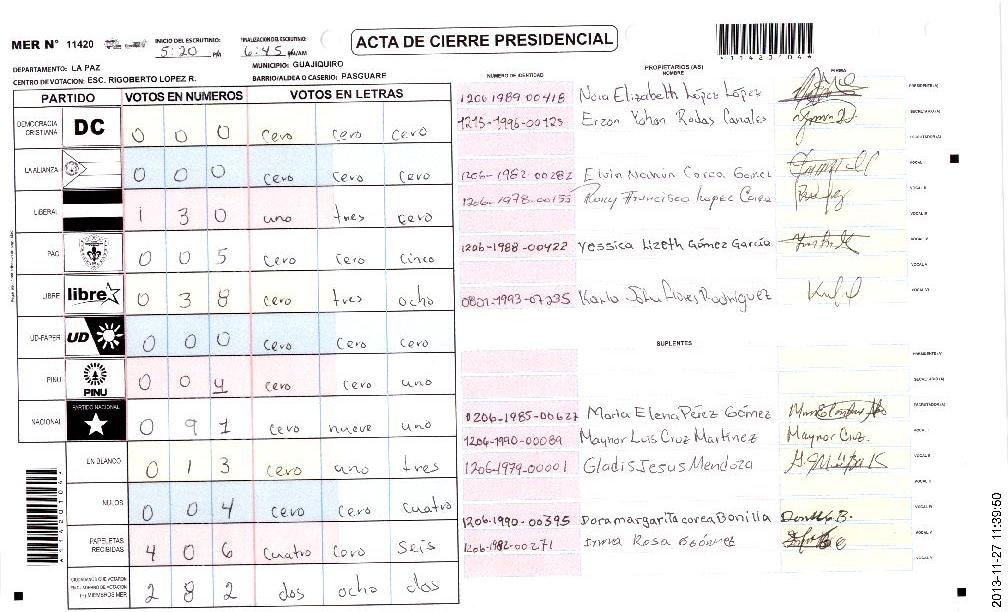 MER N° 11420
INICIO DEL ESCRUTINIO: 5:20 PM
FINALIZACION DEL ESCRUTINIO: 6:45 PM/AM
ACTA DE CIERRE PRESIDENCIAL
11420104
DEPARTAMENTO: LA PAZ
MUNICIPIO: GUAJIQUIRO
CENTRO DE VOTACION: ESC. RIGOBERTO LOPEZ R.
BARRIO/ALDEA O CASERIO: PASGUARE
PARTIDO VOTOS EN NUMEROS VOTOS EN LETRAS
DEMOCRACIA CRISTIANA DC 0 0 0 cero cero cero
LA ALIANZA 0 0 0 cero cero cero
LIBERAL 1 3 0 uno tres cero
PAC 0 0 5 cero cero cinco
LIBRE libre 0 3 8 cero tres ocho
UD-FAPER UD 0 0 0 cero cero cero
PINU PINU 0 0 1 cero cero uno
NACIONAL PARTIDO NACIONAL 0 9 1 cero nueve uno
EN BLANCO 0 1 3 cero uno tres
NULOS 0 0 4 cero cero cuatro
PAPELETAS RECIBIDAS 4 0 6 cuatro cero seis
CIUDADANOS QUE VOTARON
(+) MIEMBROS MER 2 8 2 dos ocho dos
NUMERO DE IDENTIDAD PROPIETARIOS (AS) NOMBRE FIRMA
1206-1989-00418 Elizabeth López López PRESIDENTE(A)
1215-1996-00125 Erzon Yohan Rodas Canales SECRETARIO(A)
ESCRUTADOR(A)
1206-1982-00282 Elvin Nahún Corea Gomez VOCAL I
1206-1978-00155 Rony Francisco Lopez VOCAL II
VOCAL III
1206-1988-00422 Yessica Lizeth Gómez García VOCAL IV
VOCAL V
0801-1993-07235 Karla Flores Rodriguez VOCAL VI
SUPLENTES
PRESIDENTE(A)
SECRETARIO(A)
1206-1985-00627 Maria Elena Pérez Gómez ESCRUTADOR(A)
1206-1990-00089 Maynor Luis Cruz Martinez Maynor Cruz. VOCAL I
1206-1979-00001 Gladis Jesus Mendoza VOCAL II
VOCAL III
1206-1990-00395 Dora margarita corea Bonilla VOCAL IV
1206-1982-00271 Irma Rosa VOCAL V
VOCAL VI
11420104
2013-11-27 11:39:50